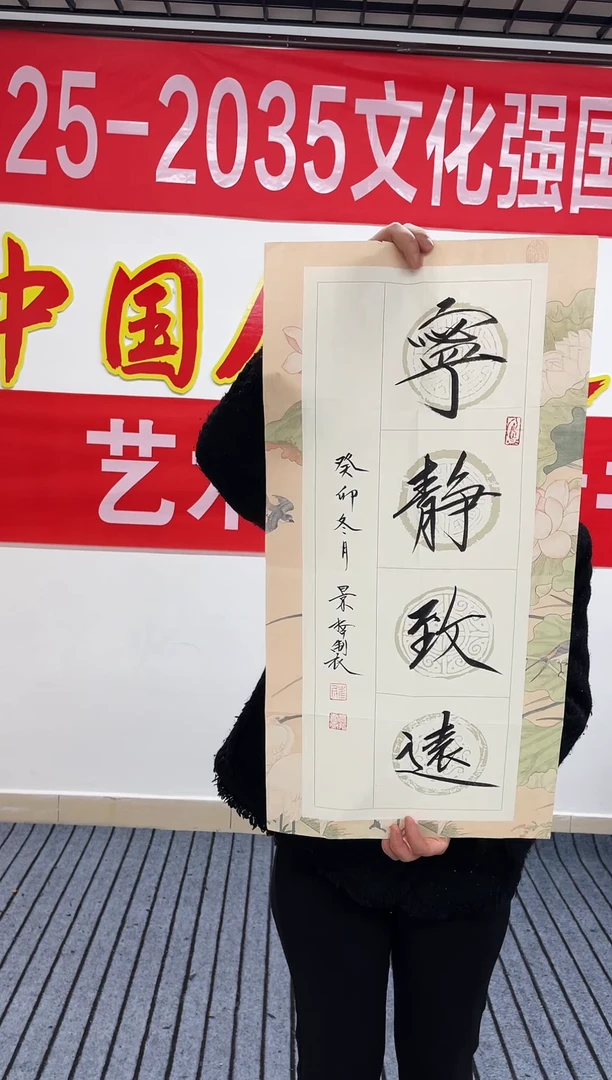 25-2035文化强国
中国
艺术
寧靜致遠
癸卯冬月